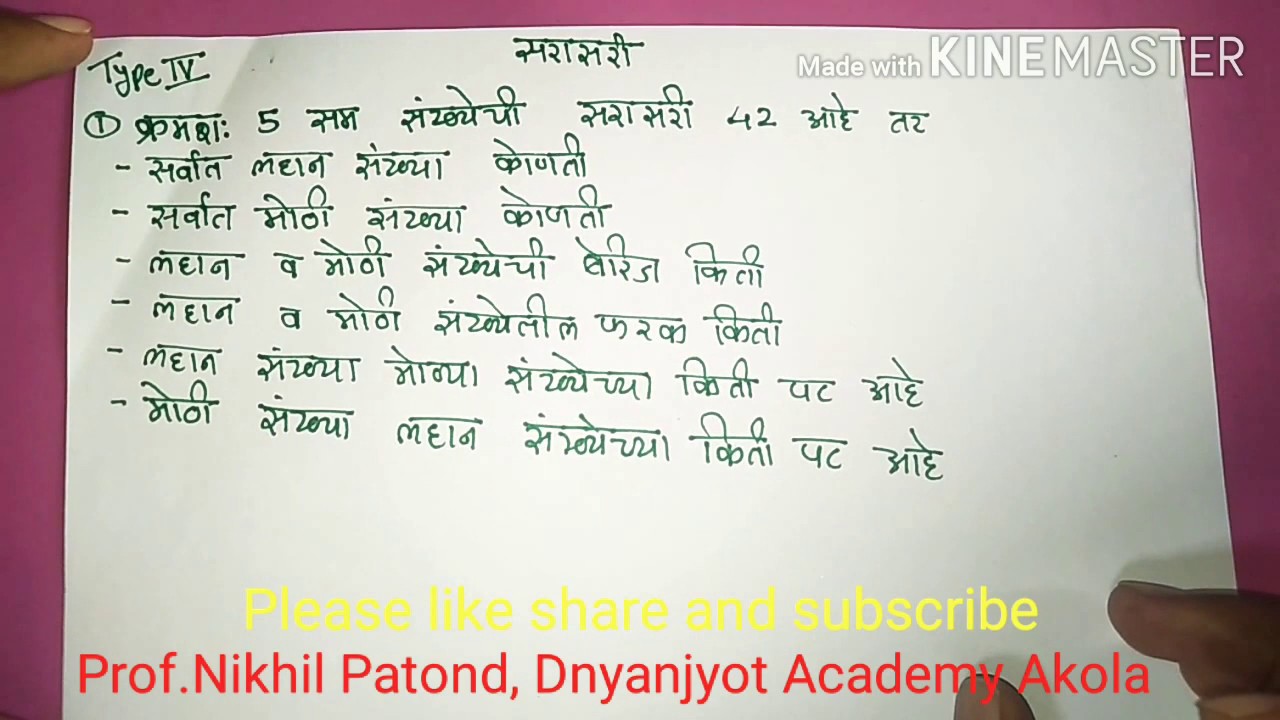 सरासरी
Made with KINEMASTER
Type IV
① क्रमशः 5 सम संख्येची सरासरी 42 आहे तर
- सर्वात लहान संख्या कोणती
- सर्वात मोठी संख्या कोणती
- लहान व मोठी संख्येची बेरिज किती
- लहान व मोठी संख्येतील फरक किती
- लहान संख्या मोठ्या संख्येच्या किती पट आहे
- मोठी संख्या लहान संख्येच्या किती पट आहे
Please like share and subscribe
Prof.Nikhil Patond, Dnyanjyot Academy Akola